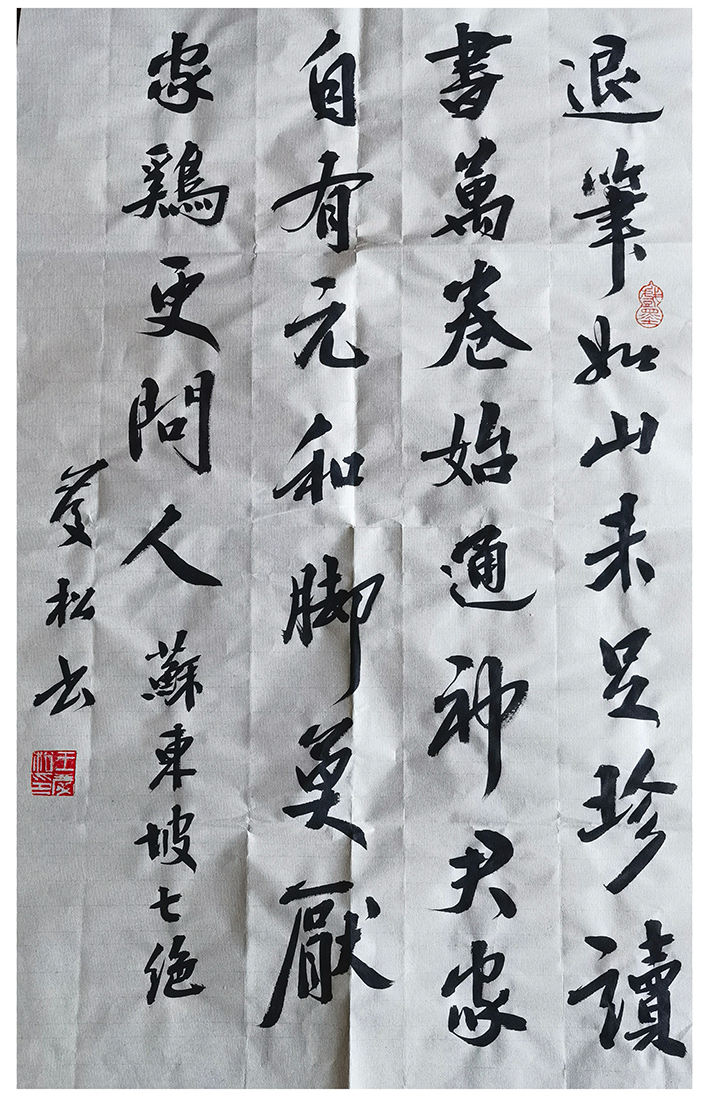 退筆如山未足珍讀
書萬卷始通神君家
自有元和脚莫厭
家鷄更問人 蘇東坡七絶
松书